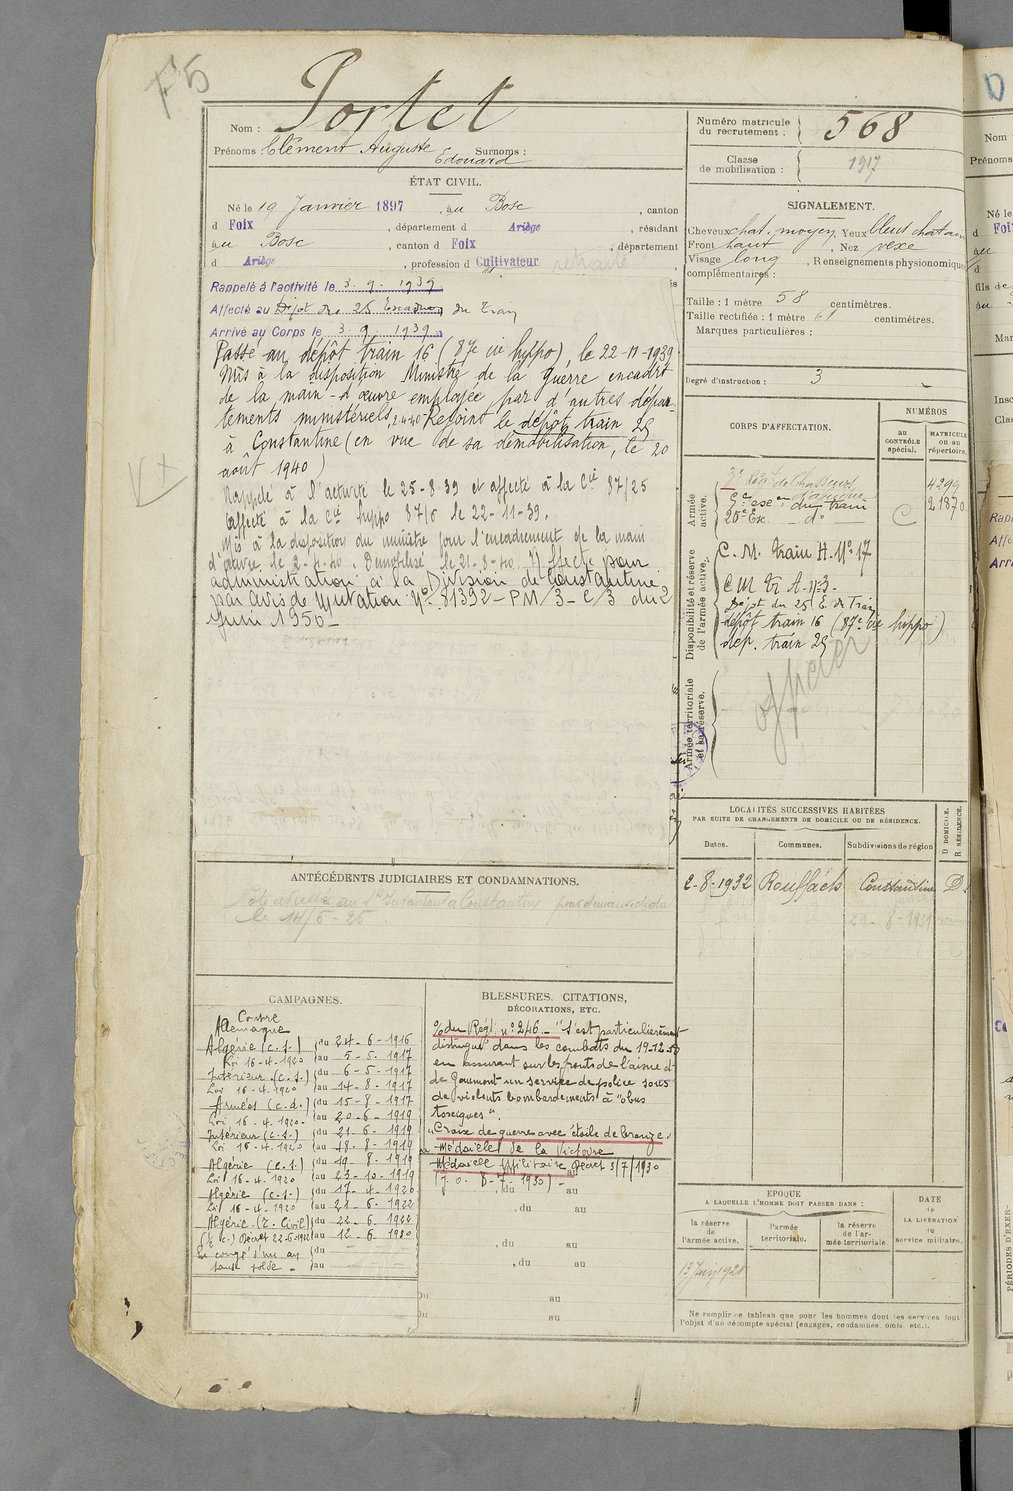 F5
Nom : Portet
Prénoms : Clément Auguste Edouard Surnoms :
ÉTAT CIVIL.
Né le 19 Janvier 1897, au Bosc, canton
d Foix, département d Ariège, résidant
au Bosc, canton d Foix, département
d Ariège, profession d Cultivateur retraité
Rappelé à l'activité le 3. 9. 1939
Affecté au Dépôt du 25 Escadron du Train
Arrivé au Corps le 3. 9. 1939
Passé au dépôt train 16 (87e cie hippo), le 22-11-1939
Mis à la disposition Ministre de la guerre encadrt
de la main-d'œuvre employée par d'autres dépar-
tements ministériels, Rejoint le dépôt train 25
à Constantine (en vue de sa démobilisation, le 20
août 1940)
Rappelé à l'activité le 25-8-39 et affecté à la Cie 87/25
Affecté à la Cie hippo 87/6 le 22-11-39.
Mis à la disposition du ministre pour l'encadrement de la main
d'œuvre, le 2-4-40. Démobilisé le 21-8-40. Affecté pour
administration à la Division de Constantine
par Avis de Mutation N° 81392-PM/3-C/3 du 2
Juin 1950-
ANTÉCÉDENTS JUDICIAIRES ET CONDAMNATIONS.
le 14/5-25
CAMPAGNES.
Contre
Allemagne
Algérie (c.s.) du 24-6-1916
Loi 16-4-1920 au 5-5-1917
Intérieur (c.s.) du 6-5-1917
Loi 16-4-1920 au 14-8-1917
Armées (c.d.) du 15-8-1917
Loi 16-4-1920- au 20-6-1919
Intérieur (c.s.) du 21-6-1919
Loi 16-4-1920 au 18-8-1919
Algérie (c.s.) du 19-8-1919
Loi 16-4-1920 au 23-10-1919
Algérie (c.s.) du 17-4-1920
Loi 16-4-1920 au 21-6-1922
Algérie (T. Civil) du 22-6-1922
Décret 22-6-1922 au 12-6-1930
En congé d'un an du
sans solde - au
BLESSURES, CITATIONS,
DÉCORATIONS, ETC.
% du Régt n° 246 - "S'est particulièrement
distingué dans les combats du
en assurant sur les fronts de l'aisne et
de Gaumont un service de police sous
de violents bombardements à obus
toxiques".
"Croix de guerre avec étoile de bronze"
Médaille de la Victoire
Médaille Militaire Décret 3/7/1930
(J.O. 8-7-1930) -
, du au
, du au
, du au
, du au
Du au
Du au
Numéro matricule
du recrutement : 568
Classe
de mobilisation : 1917
SIGNALEMENT.
Cheveux chat. moyen Yeux bleus chatain
Front haut, Nez vexe
Visage long, Renseignements physionomiques
complémentaires :
Taille : 1 mètre 58 centimètres.
Taille rectifiée : 1 mètre 61 centimètres.
Marques particulières :
Degré d'instruction : 3
CORPS D'AFFECTATION.
NUMÉROS
au
CONTRÔLE
spécial.
MATRICULE
ou au
répertoire.
Armée
active.
3e Régt de Chasseurs
d'afrique 4299
5e escon du train 21870
20e Esc. - do - C
Disponibilité et réserve
de l'armée active.
C. M. train H. N° 17
C M Tr A - n° 3.
Dépôt du 25 E. du Train
dépôt train 16 (87e cie hippo)
dép. train 25
officier
Armée territoriale
et sa réserve.
LOCALITÉS SUCCESSIVES HABITÉES
PAR SUITE DE CHANGEMENTS DE DOMICILE OU DE RÉSIDENCE.
Dates.
Communes.
Subdivisions de région
D DOMICILE.
R RÉSIDENCE.
2-8-1932 Rouffach Constantine D.
ÉPOQUE
A LAQUELLE L'HOMME DOIT PASSER DANS :
la réserve
de
l'armée active.
l'armée
territoriale.
la réserve
de l'ar-
mée territoriale.
DATE
de
LA LIBÉRATION
du
service militaire.
13 Juin 1920
Ne remplir ce tableau que pour les hommes dont les services font
l'objet d'un décompte spécial (engagés, condamnés, omis, etc.).
D
Nom
Prénoms
Né le
d Foi
au
d
fils de
Mar
Insc
Clas
Rapp
Affe
Arri
PÉRIODES D'EXER-